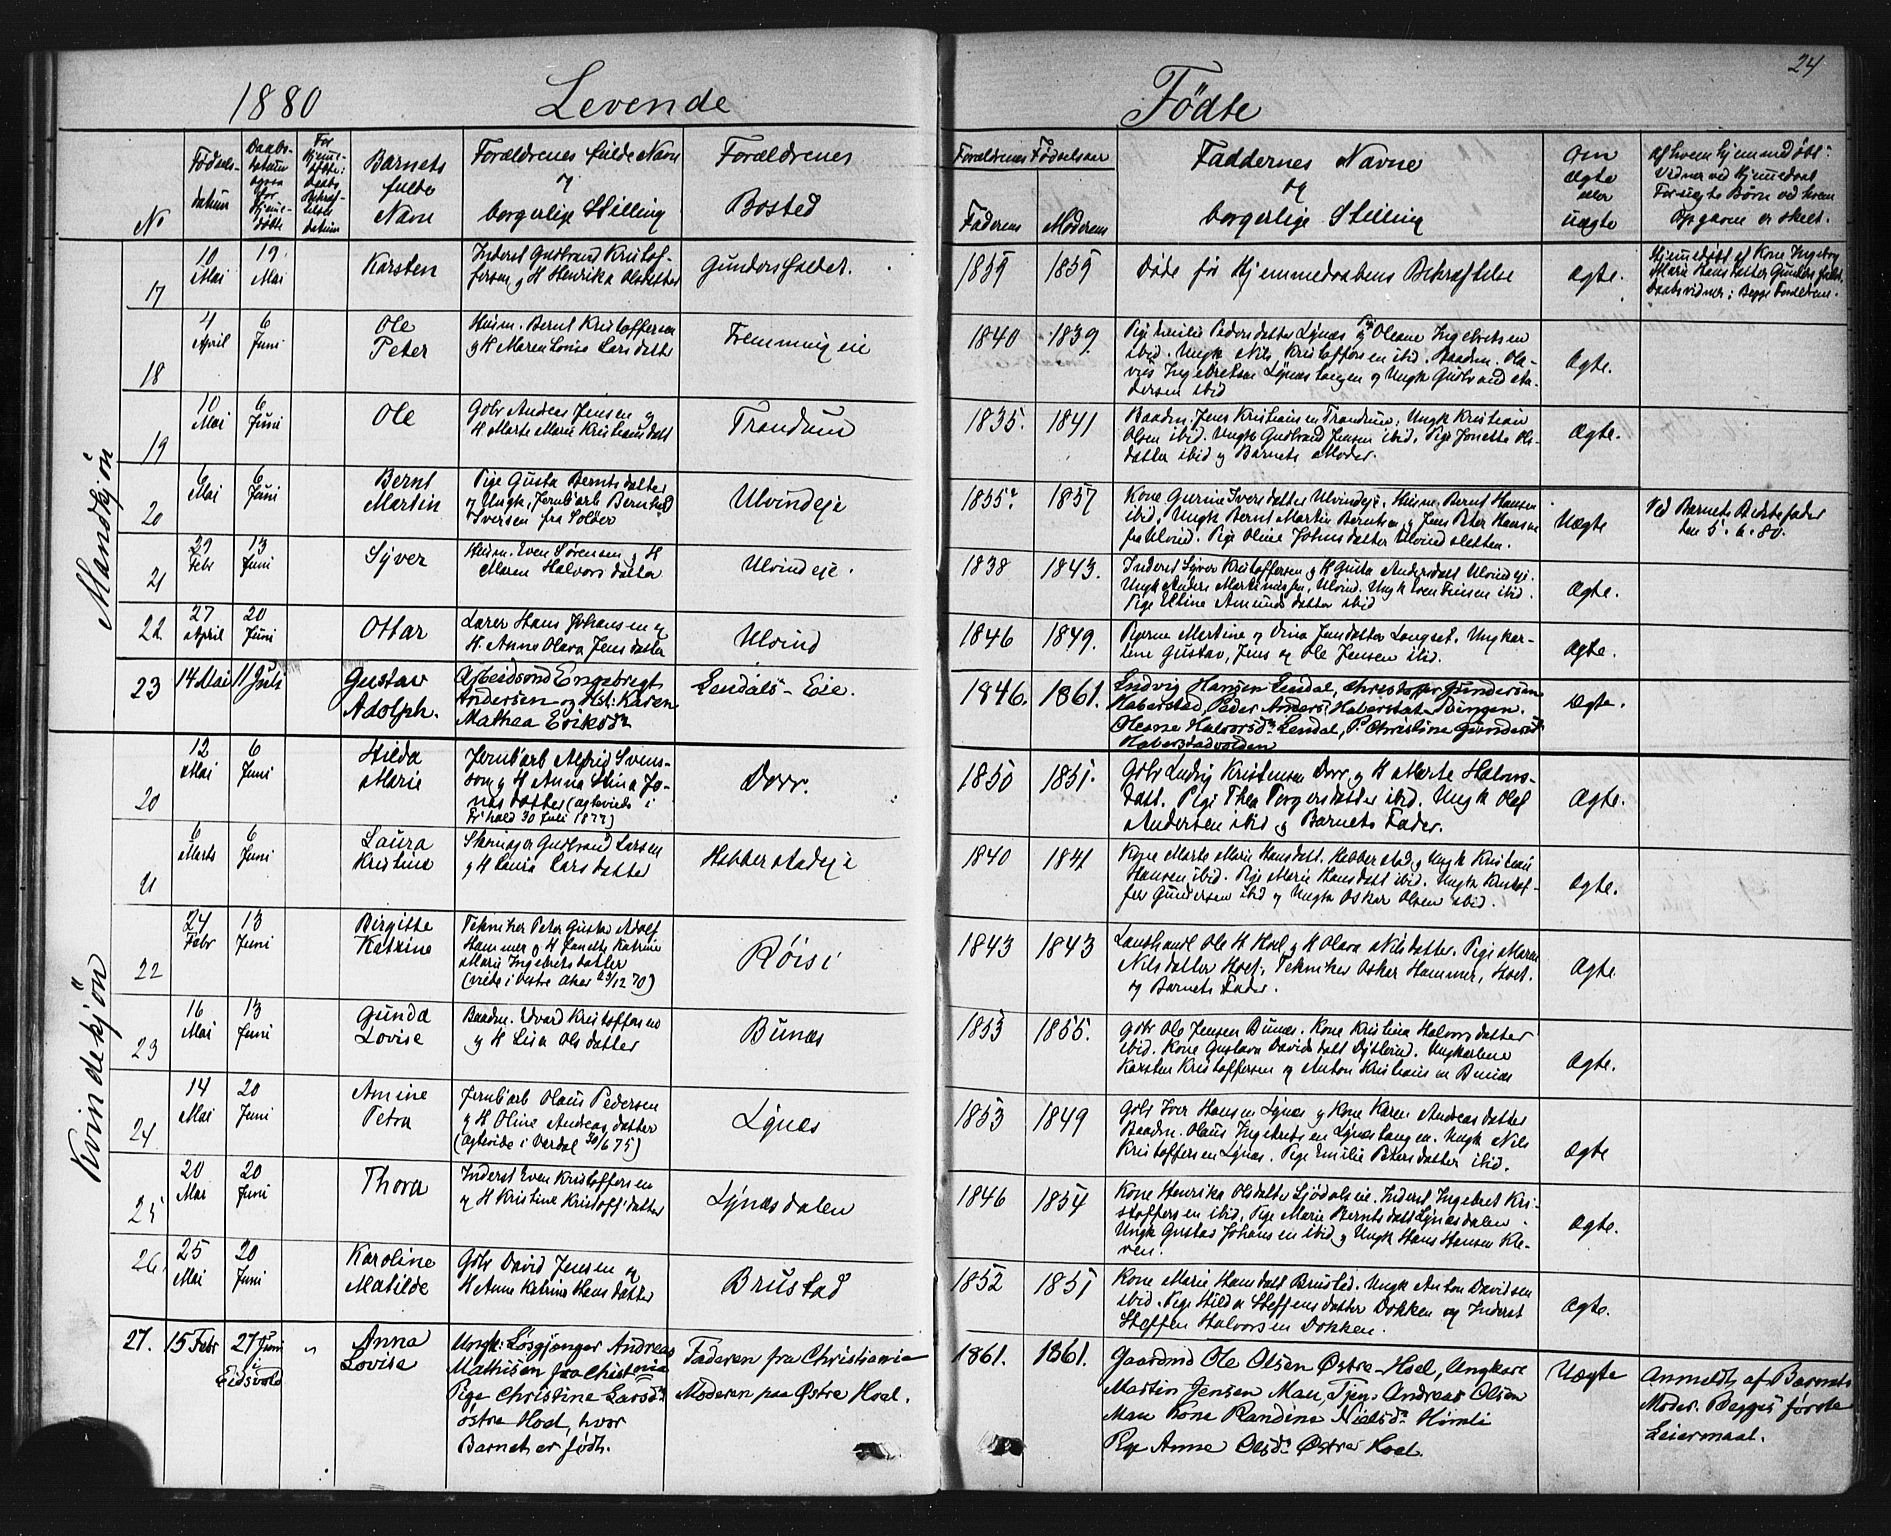 24
1880 Levende Fødte
No
Fødsels-
datum
Daabs-
datum
ogsaa
for
Hjemme-
døbte
For
Hjemme-
døbte:
Daabs
Bekræf-
telse
datum
Barnets
fulde
Navn
Forældrenes fulde Navn
og
borgerlige Stilling
Forældrenes
Bosted
Forældrenes Fødselsaar
Faderens Moderens
Faddernes Navne
og
borgerlige Stilling
Om
ægte
eller
uægte
Af hvem hjemmedøbt:
Vidner ved Hjemmedaab
For uægte Børn ved hvem
Opgaven er skeet.
Mandkjøn
17
10
Mai
19
Mai
Karsten
Inderst Gudbrand Kristof-
fersen og H Henrika Olsdatter
Gundersfaldet.
1859 1859
Døde før Hjemmedaabens Bekræftelse
Ægte.
Hjemmedøbt af Kone Ingeborg
Marie Hansdatter Gundersfald.
Daabsvidner: Begge Forældrene.
18
4
April
6
Juni
Ole
Peter
Husm. Bernt Kristoffersen
og H Maren Lovise Larsdatter
Fremming eie
1840 1839
Pige Emilie Pedersdatter Lynæs og Pige Oleane Ingebretsen
ibid. Ungk Nils Kristoffersen ibid. Baadm. Ola-
vus Ingebretsen Lynæstangen og Ungk Gudbrand An-
dersen ibid
Ægte.
19
10
Mai
6
Juni
Ole
Gbr Andreas Jensen og
H Marte Marie Kristiansdatt
Trandum
1835. 1841
Baadm. Jens Kristiansen Trandum, Ungk Kristian
Olsen ibid. Ungk Gudbrand Jensen ibid. Pige Jonette Ols-
datter ibid og Barnets Moder.
Ægte.
20
6
Mai
6
Juni
Bernt
Martin
Pige Gusta Berntsdatter
og Ungk, Jernb.arb Bernhard
Iversen fra Soløer
Ulvindeje
1855? 1857
Kone Gurine Iversdatter Ulvindeje. Husm. Bernt Hansen
ibid. Ungk Bernt Martin Berntsen og Jens Peter Hansen
fra Ulvind. Pige Oline Johnsdatter Ulvindsletten.
Uægte
Ved Barnets Bedstefader
den 5. 6. 80.
21
29
Febr
13
Juni
Syver
Husm. Even Sørensen og H
Maren Halvorsdatter
Ulvindeje.
1838 1843.
Inderst Syver Kristoffersen og H Gusta Andersdatt Ulvindeje.
Ungk Anders Martiniussen, Ulvind. Ungk Even Finsen ibid.
Pige Eltine Amundsdatter ibid
Ægte.
22
27
April
20
Juni
Ottar
Lærer Hans Johansen og
H. Anne Olava Jensdatter
Ulvind
1846 1849.
Pigerne Martine og Dina Jensdatter Langset. Ungkar-
lene Gustav, Jens og Ole Jensen ibid.
Ægte.
23
14 Mai
11 Juli
Gustav
Adolph.
Arbeidsmd Engebregt
Andersen og Hst: Karen
Mathea Eriksdr
Lendals-Eie.
1846. 1861.
Ludvig Hansen Lendal, Christoffer Gundersen
Haberstad, Peder Anders: Haberstad Pengen.
Oleane Halvorsdr Lendal, P. Christine Gundersdr
Haberstadvolden
Ægte.
Kvindekjøn
20
12
Mai
6
Juni
Hilda
Marie
Jernb.arb Alfrid Svens-
son og H Anna Stina Jo-
nasdatter (ægteviede i
Fr.hald 30 Juli 1877)
Dorr.
1850 1851.
Gbr Ludvig Kristensen Dorr, og H Marte Halvors-
datt. Pige Thea Torgersdatter ibid. Ungk Olaf
Andersen ibid og Barnets Fader.
Ægte.
21
6
Marts
6
Juni
Laura
Kristine
Skomager Gudbrand Larsen
og H Laura Larsdatter
Hebberstadeje
1840 1841
Kone Marte Marie Hansdatt. Hebberstad, og Ungk Kristian
Hansen ibid. Pige Marie Hansdatt ibid. Ungk Kristof-
fer Gundersen ibid og Ungk Oskar Olsen ibid.
Ægte.
22
24
Febr
13
Juni
Birgitte
Katrine
Tekniker Peter Gustav Adolf
Hammer og H Janette Katrine
Marie Ingebretsdatter
(viede i Vestre Aker 23/12 70)
Røisi
1843 1843
Landhandl Ole H Hoel og H Olava Nilsdatter. Pige Maren
Nilsdatter Hoel. Tekniker Oskar Hammer, Hoel.
og Barnets Fader.
Ægte
23
16
Mai
13
Juni
Gunda
Lovise
Baadm. Edvard Kristoffersen
og H Lisa Olsdatter
Bunæs
1853 1855.
Gbr Ole Jensen Bunæs. Kone Kristina Halvorsdatter
ibid. Kone Gustava Davidsdatt Dytterud. Ungkarlene
Karsten Kristoffersen og Anton Kristiansen Bunæs
Ægte.
24
14
Mai
20
Juni
Amine
Petra
Jernb.arb Olaus Pedersen
og H Oline Andreasdatter
(ægteviede i Vardal 30/6 75)
Lynæs
1853 1849
Gbr Iver Hansen Lynæs og Kone Karen Andreasdatter
Baadm. Olaus Ingebretsen Lynæstangen. Ungk Nils
Kristoffersen Lynæs. Pige Emilie Petersdatter ibid.
Ægte
25
20
Mai
20
Juni
Thora
Inderst Even Kristoffersen
og H Kristine Kristoff.datter
Lynæsdalen
1846 1854
Kone Henrika Olsdatter Sjødalseie. Inderst Ingebret Kri-
stoffersen ibid. Pige Marie Berntsdatt Lynæsdalen.
Ungk Gustav Johansen ibid og Ungk Hans Hansen Kle-
ven.
Ægte.
26.
25
Mai
20
Juni
Karoline
Matilde
Gbr David Jensen og
H Anne Katrine Hansdatter
Brustad
1852 1851
Kone Marie Hansdatt Brustad. Ungk Anton Davidsen
ibid. Pige Hilda Steffensdatter Dokken og Inderst
Steffen Halvorsen Dokken.
Ægte.
27.
15 Febr
27 Juni
i
Eidsvold
"
Anna
Lovise
Ungk: Løsgjænger Andreas
Mathisen fra Christania
Pige Christine Larsdr
østre Hoel, hvor
Barnet er født.
Faderen fra Christiania
Moderen paa Østre Hoel.
1861. 1861.
Gaardmd Ole Olsen Østre-Hoel, Ungkarl
Martin Jensen Mau, Tjeng Andreas Olsen
Mau Kone Randine Nielsdr Himli
Pige Anne Olsdr Østre Hoel.
Uægte
Anmeldt af Barnets
Moder. Begges første
Leiermaal.